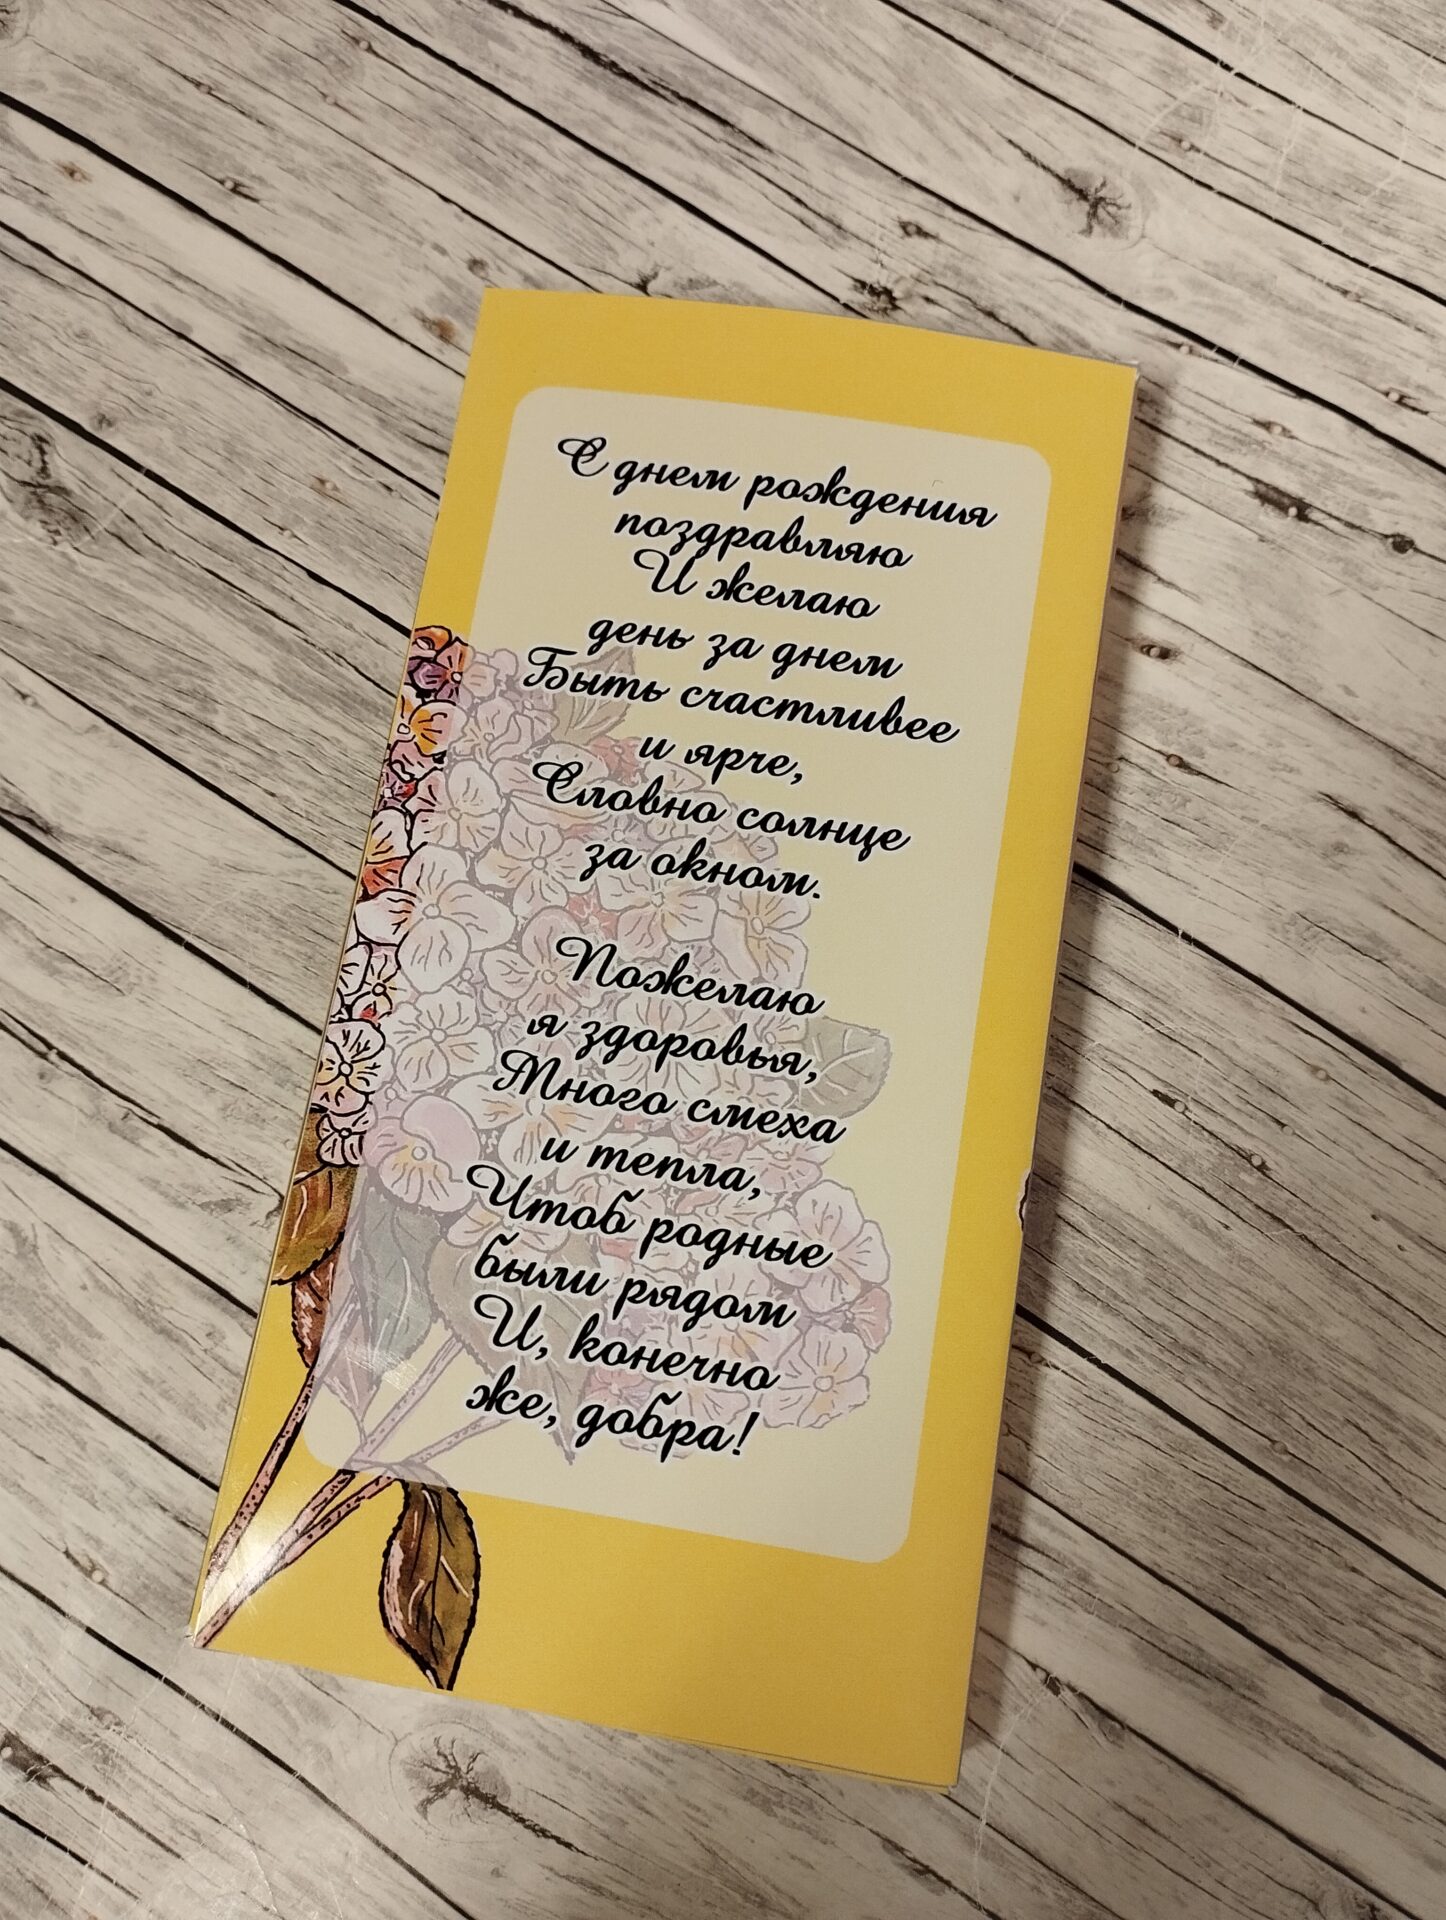 С днем рождения
поздравляю
И желаю
день за днем
Быть счастливее
и ярче,
Словно солнце
за окном.
Пожелаю
я здоровья,
Много смеха
и тепла,
Чтоб родные
были рядом
И, конечно
же, добра!